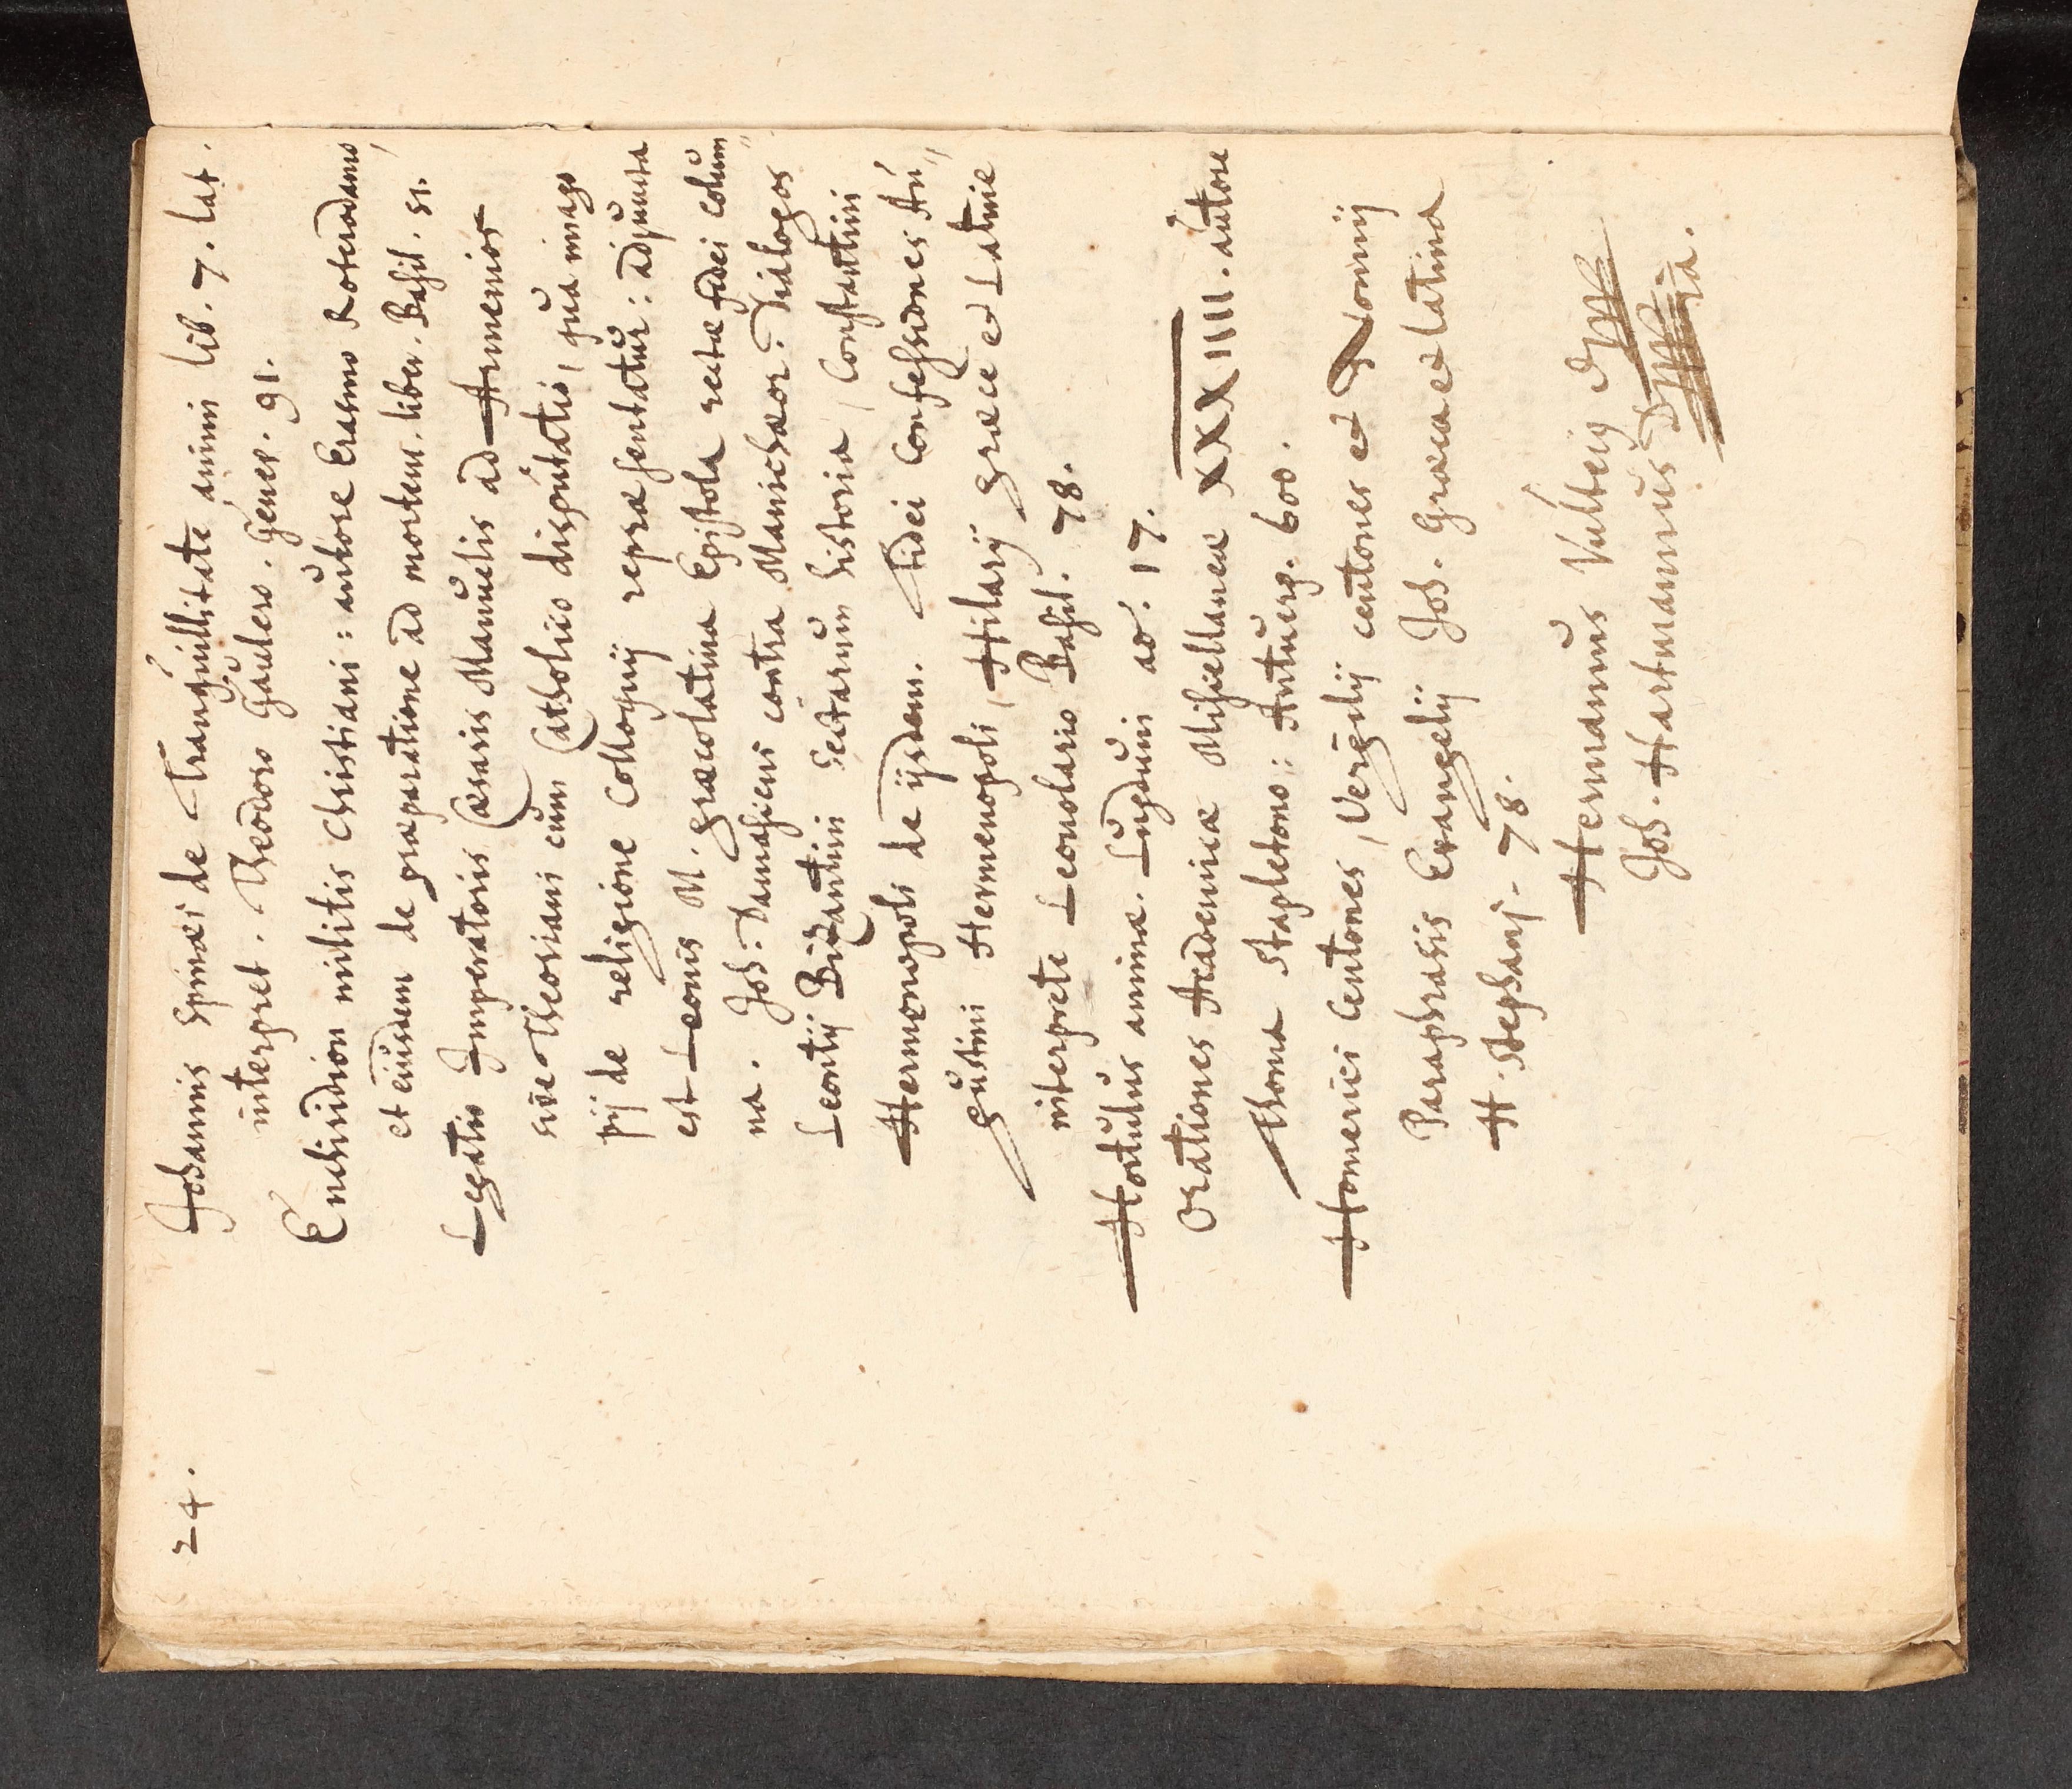 24.
Johannis Spinæi de Tranquillitate animi lib. 7. lat.
interpret. Theodoro Gaulero. Genev. 91.
Enchiridion militis Christiani: autore Erasmo Roterodamo,
et eiusdem de præparatione ad mortem. liber. Basil. 51.
Legatio Imperatoris Cæsaris Manuelis ad Armenios
sive Theoriani cum Catholico disputatio, qua imago
pij de religione Colloquij repræsentatur: adjuncta
est Leonis M. græcolatina Epistola rectæ fidei colum"
na. Joh. Damasceni contra Manichæor. Dialogos
Leontij Bizantini Sectarum historia, Constantini
Hermonopoli de ijsdem. Fidei Confessiones Au"
gustini Hermenopoli, Hilarij græce et Latine
interprete Leonclario Basil. 78.
Hortulus animæ. Lugduni ao. 17.
Orationes Academicæ Miscellaneæ XXXIIII. autore
Thoma Stapletono: Antuerp. 600.
Homerici Centones, Vergilij centones et Nonnij
Paraphrasis Evangelij Joh. Græca et Latina
H. Stephanj. 78.
Hermannus Vulteig D
Joh. Hartmannus D